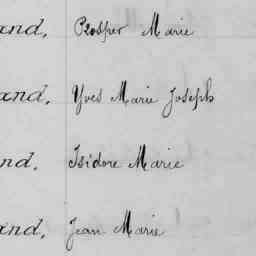 and, Prosper Marie
and, Yves Marie Joseph
nd, Isidore Marie
and, Jean Marie